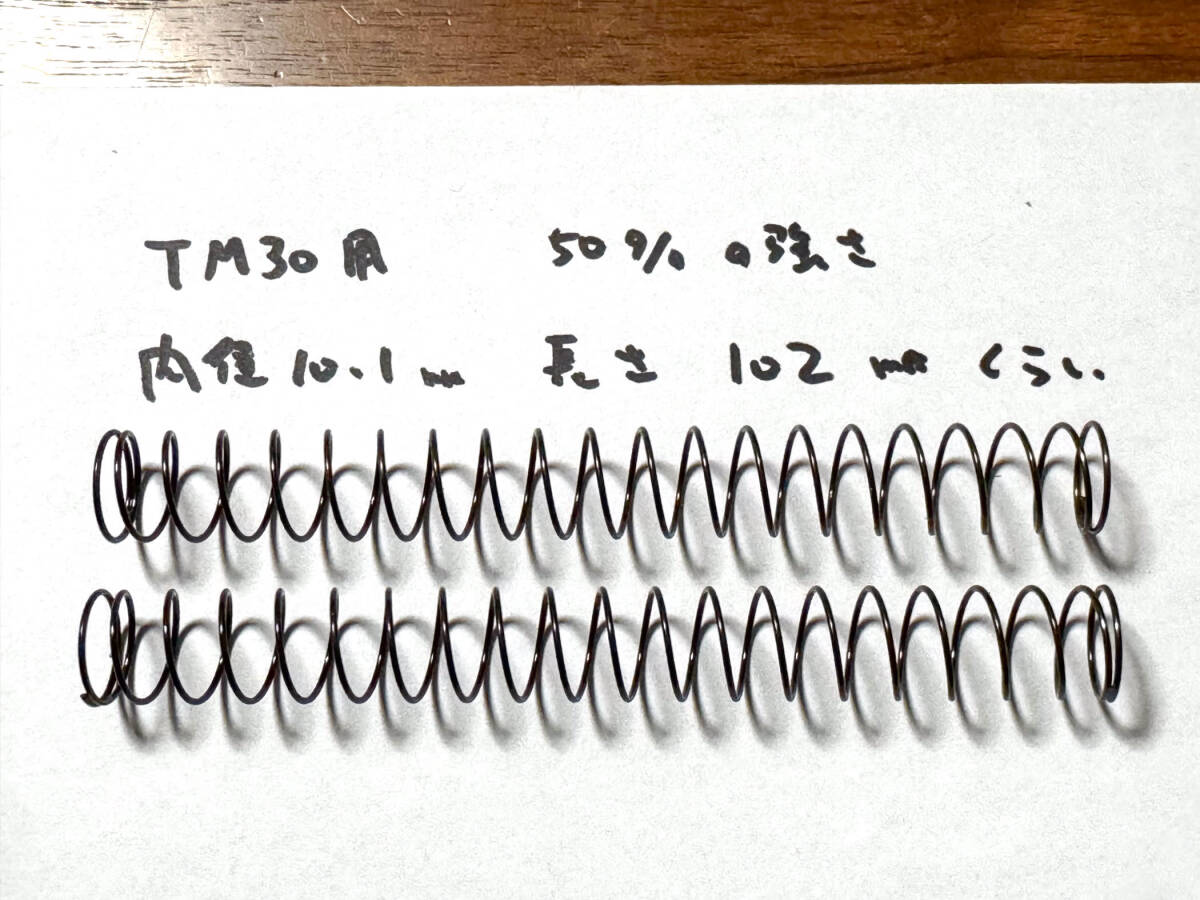 TM30用 50%の強さ
内径10.1mm 長さ 102mmくらい